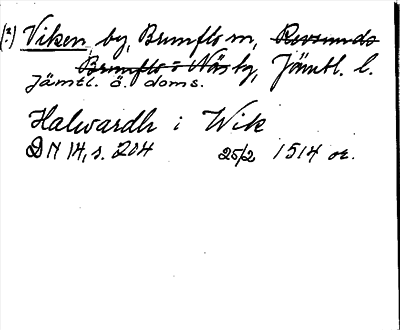 (?) Viken, by, Brunflo sn, Revsunds
Brunflo o Näs ty, Jämtl. l.
Jämtl. ö. doms.
Halwardh i Wik
DN 14, s. 204 25/2 1514 or.